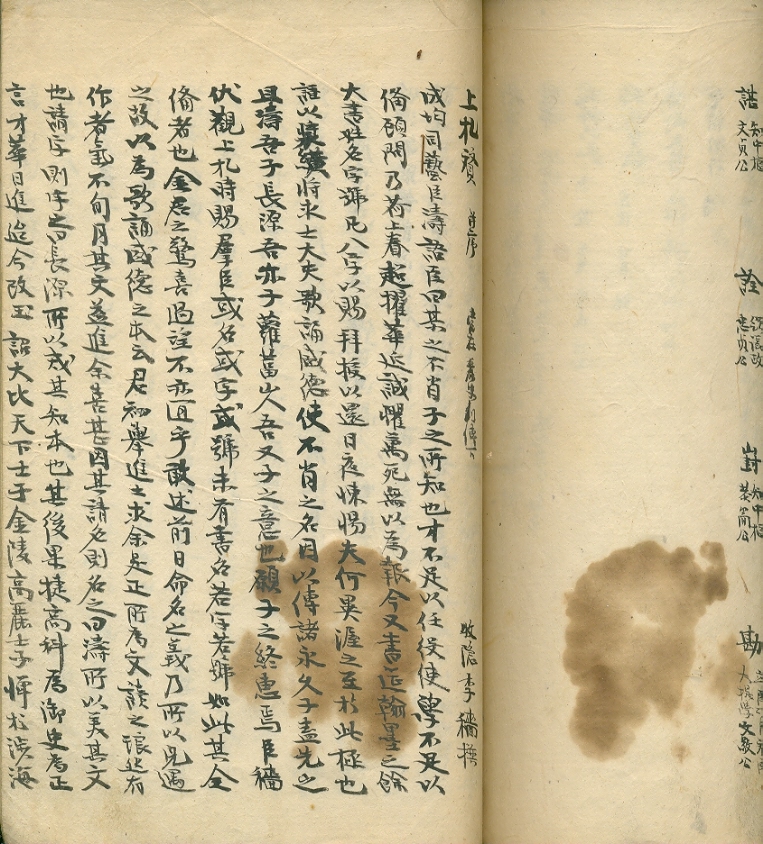 誥 知中樞 文貞公
詮 贊成政 忠貞公
崶 知中樞 恭簡公
勘 大提學文敬公
上札贊 并序 牧隱李穡撰
成均司藝臣濤語臣曰某之不肖子之所知也才不足以任役使學不足以
備顧問乃荷上眷起擢華近誠懼萬死無以為報今又書筵翰墨之餘
大書姓名字號凡八字以賜拜授以還日夜悚惕夫何異渥之至於此極也
謹以裝䌙將求士大夫歌誦盛德使不肖之名因以傳諸永久子盍先之
且濤吾子長源吾亦子蘿葍山人吾又子之意也願子之終惠焉臣穡
伏觀上札時賜羣臣或名或字或號未有書名若字若號如此其全
俻者也金君之驚喜過望不亦宜乎敢述前日命名之義乃所以見遇
之故以為歌誦盛德之本云君初擧進士求余是正所為文讀之琅然有
作者氣不旬月其文益進余喜甚因其請名則名之曰濤所以美其文
也請字則字之曰長源所以戒其知本也其後果捷高科為御史為正
言才華日進迨今改玉 詔大比天下士于金陵高麗士子憚於涉海